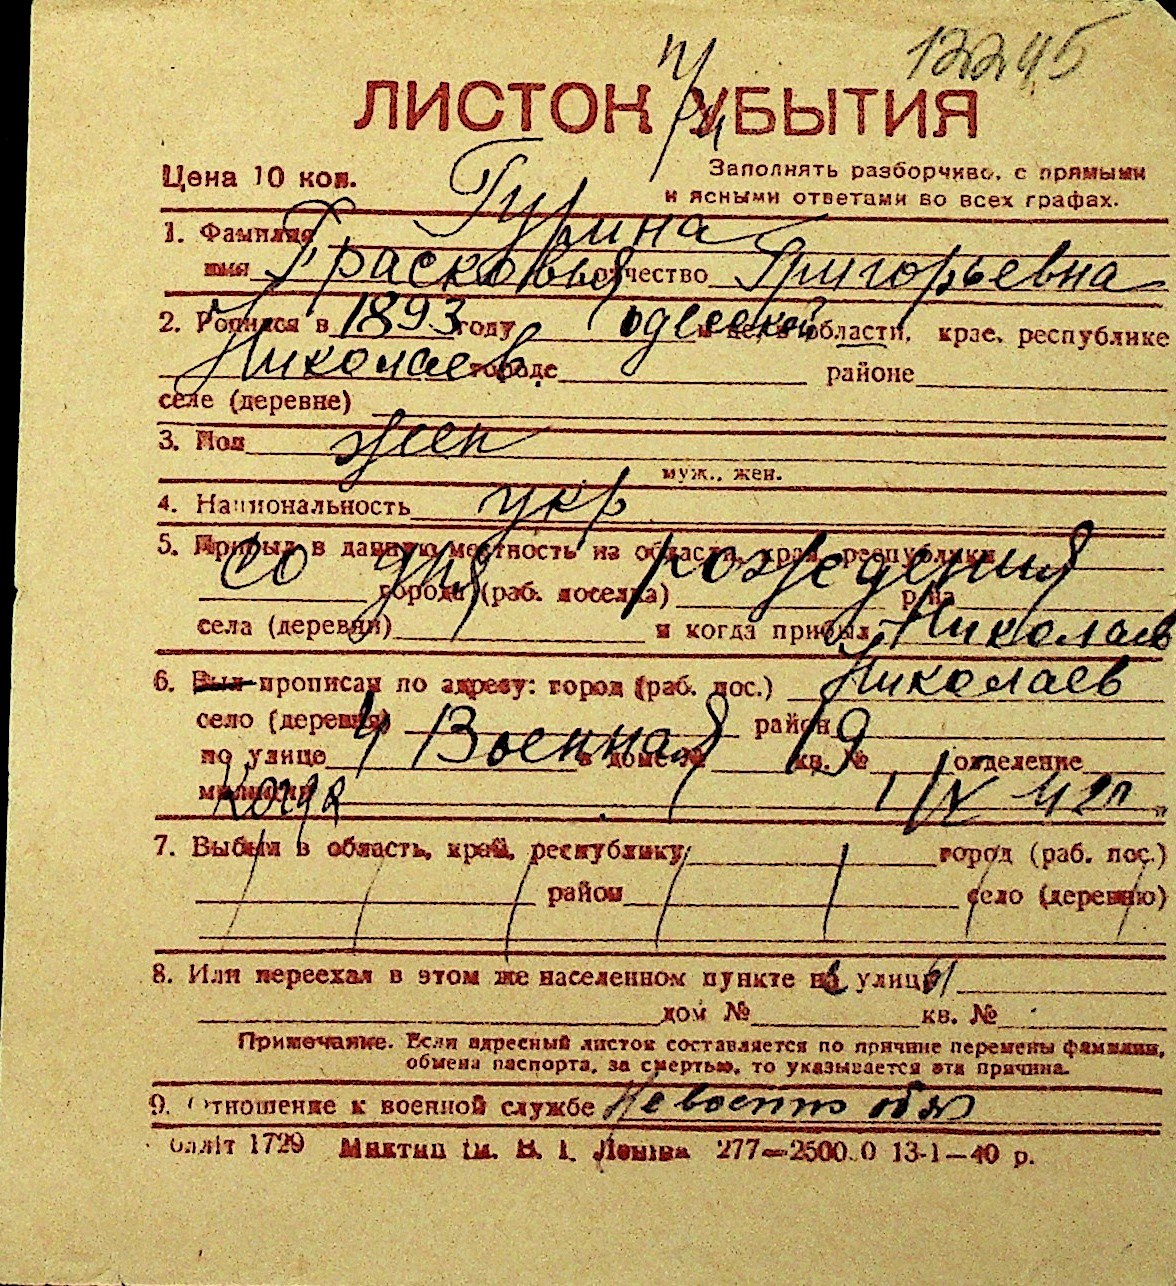 12245
ЛИСТОК УБЫТИЯ
Цена 10 коп.
Заполнять разборчиво, с прямыми
и ясными ответами во всех графах.
1. Фамилия Гурина
имя Прасковья отчество Григорьевна
2. Родился в 1893 году одесской области, крае, республике
Николаев городе районе
селе (деревне)
3. Пол жен
муж., жен.
4. Национальность укр
5. Прибыл в данную местность из области, края, республики
со дня рождения
города (раб. поселка) р-на
села (деревни) и когда прибыл Николаев
6. Был прописан по адресу: город (раб. пос.) Николаев
село (деревня) район
по улице 4 Военная в доме № 19 кв. № отделение
милиции Когда 1/IX 42г.
7. Выбыл в область, край, республику город (раб. пос.)
район село (деревню)
8. Или переехал в этом же населенном пункте на улицу
дом № кв. №
Примечание. Если адресный листок составляется по причине перемены фамилии,
обмена паспорта, за смертью, то указывается эта причина.
9. Отношение к военной службе Невоенно обяз
обліт 1729 Миктип ім. В. І. Леніна 277—2500.0 13-1—40 р.